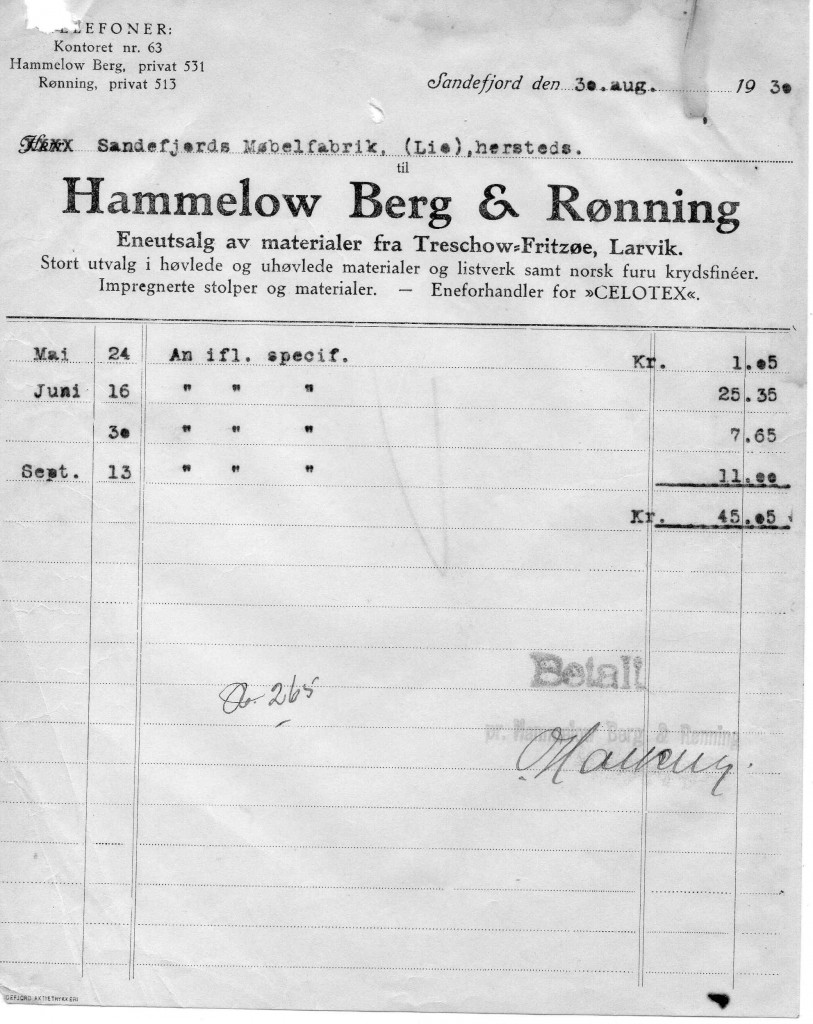 TELEFONER:
Kontoret nr. 63
Hammelow Berg, privat 531
Rønning, privat 513
Sandefjord den 30.aug. 1930
Sandefjords Møbelfabrik, (Lie),hersteds.
til
Hammelow Berg & Rønning
Eneutsalg av materialer fra Treschow=Fritzøe, Larvik.
Stort utvalg i høvlede og uhøvlede materialer og listverk samt norsk furu krydsfinéer.
Impregnerte stolper og materialer. — Eneforhandler for »CELOTEX«.
Mai 24 An ifl. specif. Kr. 1.05
Juni 16 " " " 25.35
30 " " " 7.65
Sept. 13 " " " 11.00
Kr. 45.05
Betalt
265
pr. Hammelow Berg & Rønning